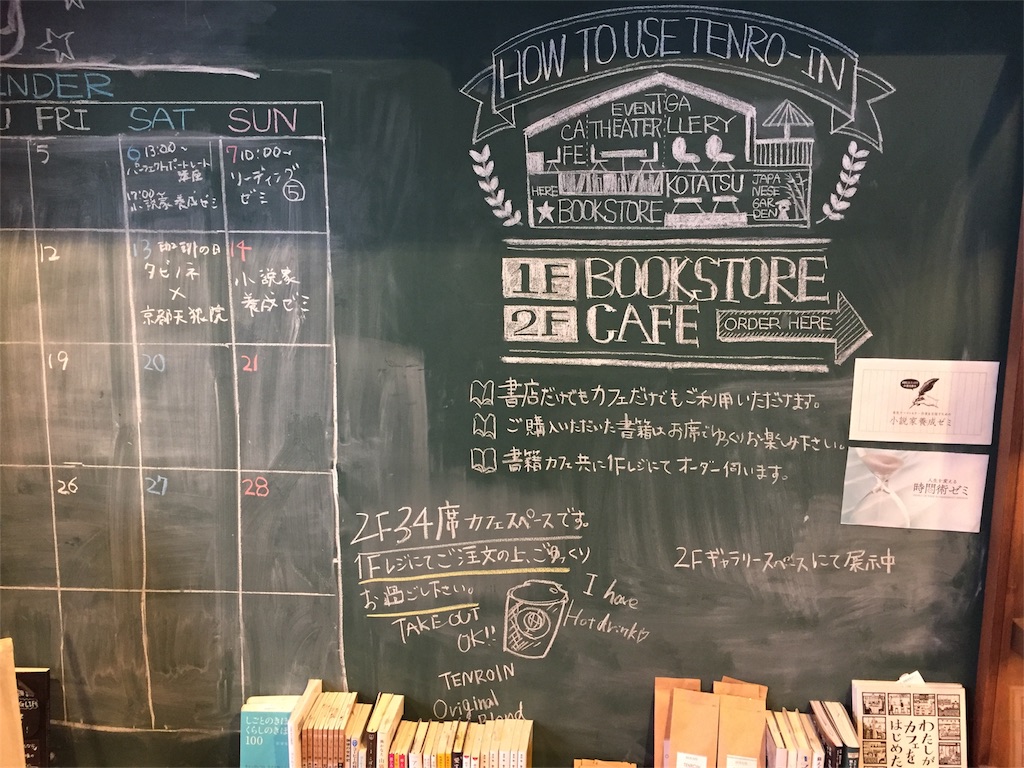 NDER
FRI SAT SUN
5
6 13:00~
パーフェクトポートレート
講座
17:00~
小説家養成ゼミ
7 10:00~
リーディング
ゼミ ⑤
12
13 珈琲の日
タビノネ
×
京都天狼院
14
小説家
養成ゼミ
19 20 21
26 27 28
HOW TO USE TENRO-IN
CAFE
EVENT THEATER
GALLERY
HERE
★BOOKSTORE
KOTATSU
JAPANESE GARDEN
1F BOOKSTORE
2F CAFE
ORDER HERE
書店だけでもカフェだけでもご利用いただけます。
ご購入いただいた書籍はお席でゆっくりお楽しみ下さい。
書籍カフェ共に1Fレジにてオーダー伺います。
小説家養成ゼミ
時間術ゼミ
2F34席カフェスペースです。
1Fレジにてご注文の上、ごゆっくり
お過ごし下さい。
TAKE OUT
OK!!
I have
Hot drink♡
2Fギャラリースペースにて展示中
TENROIN
Original
Blend
しごとのきほん
くらしのきほん
100
わたしが
カフェを
はじめた